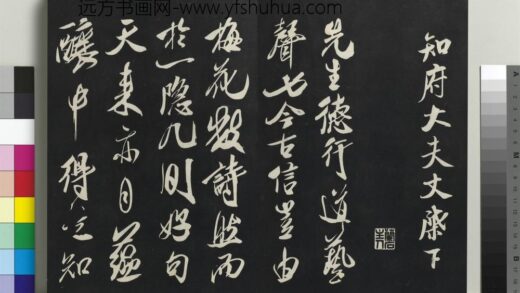 远方书画网-www.yfshuhua.com
知府大夫丈座下
先生德行道藝
聲七今古信豈由
梅花數詩然而
於一隱几則好句
天来亦自蘊
釀中得
知